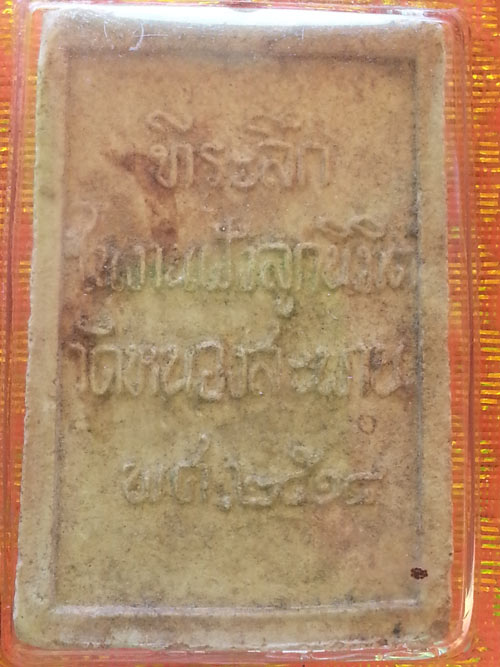 ที่ระลึก
ในงานฝังลูกนิมิต
วัดหนองสะพาน
พ.ศ.๒๕๑๘